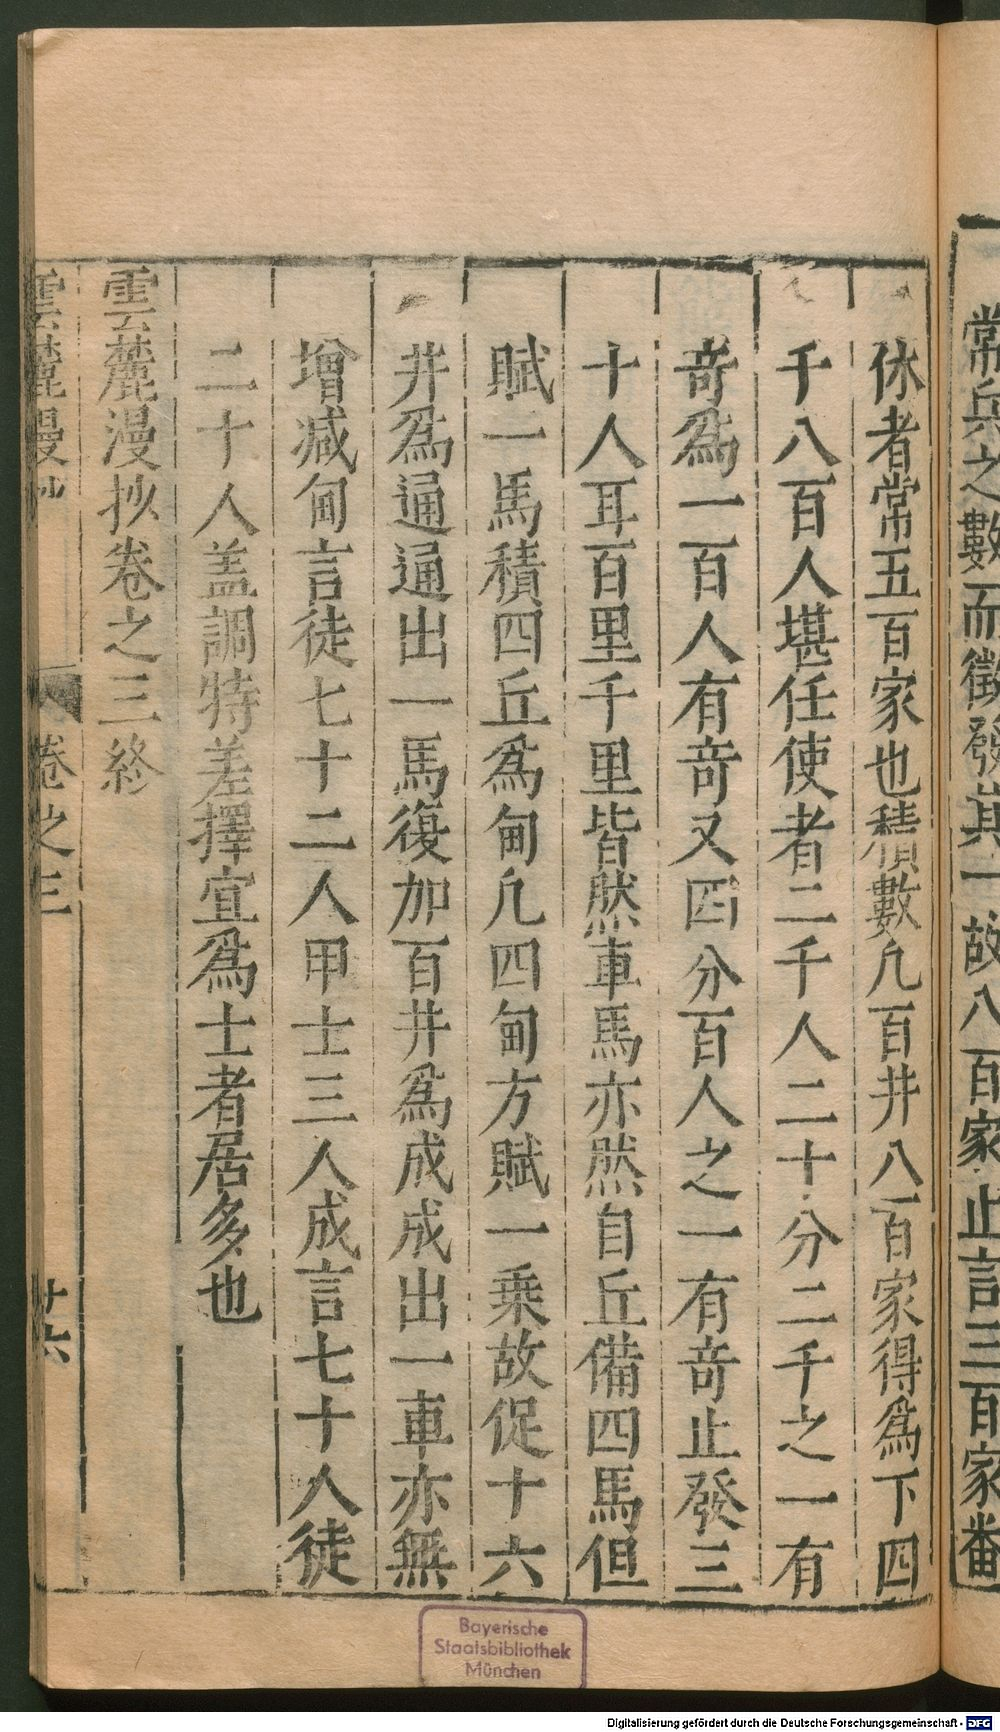 常兵之數而徵發其一故八百家止言三百家番
休者常五百家也積數凢百井八百家得爲下四
千八百人堪任使者二千人二十分二千之一有
竒爲一百人有竒又四分百人之一有竒止發三
十人耳百里千里皆然車馬亦然自丘備四馬但
賦一馬積四丘爲甸凢四甸方賦一乗故促十六
井爲通通出一馬復加百井爲成成出一車亦無
增減甸言徒七十二人甲士三人成言七十人徒
二十人盖調特差擇宜爲士者居多也
雲麓漫抄卷之三終
雲麓漫抄 卷之三 廿六
Bayerische
Staatsbibliothek
München
Digitalisierung gefördert durch die Deutsche Forschungsgemeinschaft - DFG